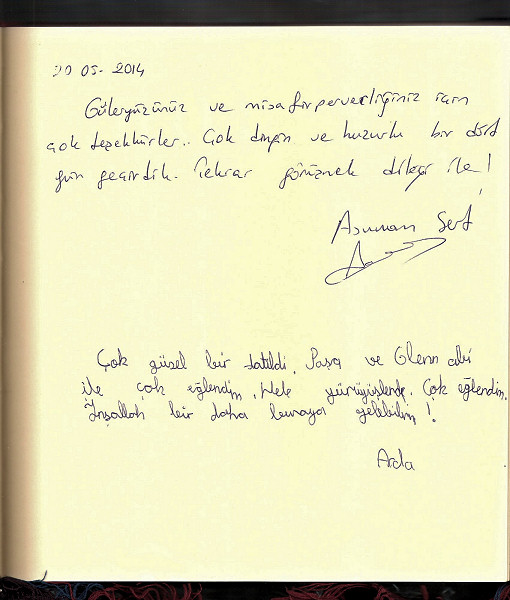 20 05. 2014
Güleryüzünüz ve misafirperverliğiniz için
çok teşekkürler.. Çok dingin ve huzurlu bir dört
gün geçirdik. Tekrar görüşmek dileği ile!
Asuman Sert
Çok güsel bir tatildi. Paşa ve Glenn abi
ile çok eğlendim. Hele yürüyüşlerde. Çok eğlendim.
İnşallah bir daha buraya gelebilim!
Arda